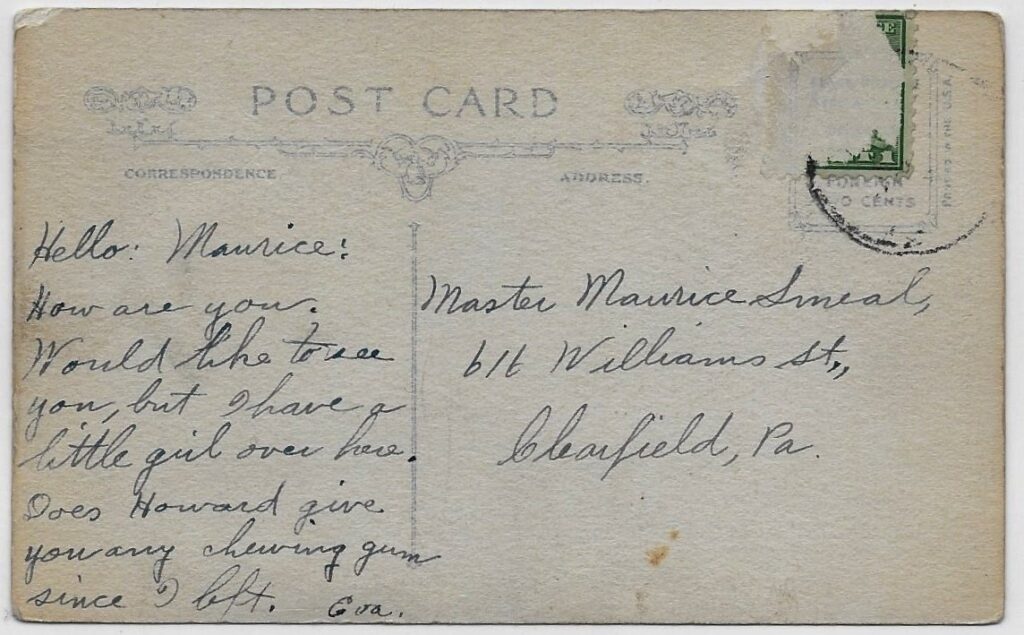 POST CARD
CORRESPONDENCE
ADDRESS.
PRINTED IN THE U.S.A.
FOREIGN
CENTS
Hello: Maurice:
How are you.
Would like to see
you, but I have a
little girl over here.
Does Howard give
you any chewing gum
since I left. Eva.
Master Maurice Smeal,
616 Williams St.,
Clearfield, Pa.